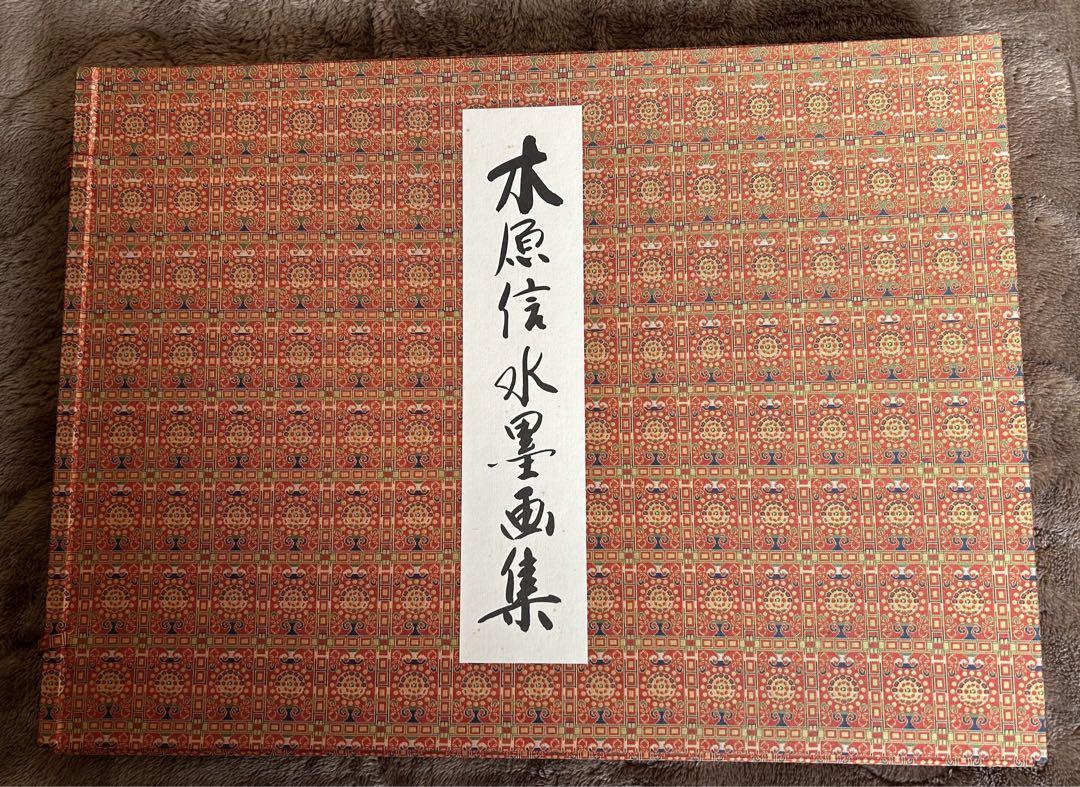 木原信水墨画集